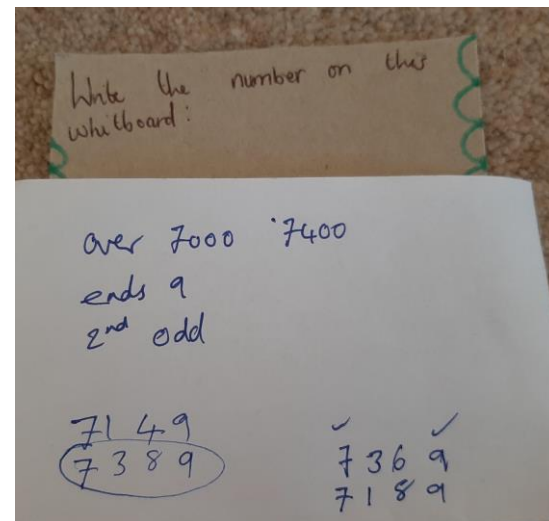 Write the number on this
whitboard:
over 7000 7400
ends 9
2nd odd
7149
7389
7369
7189